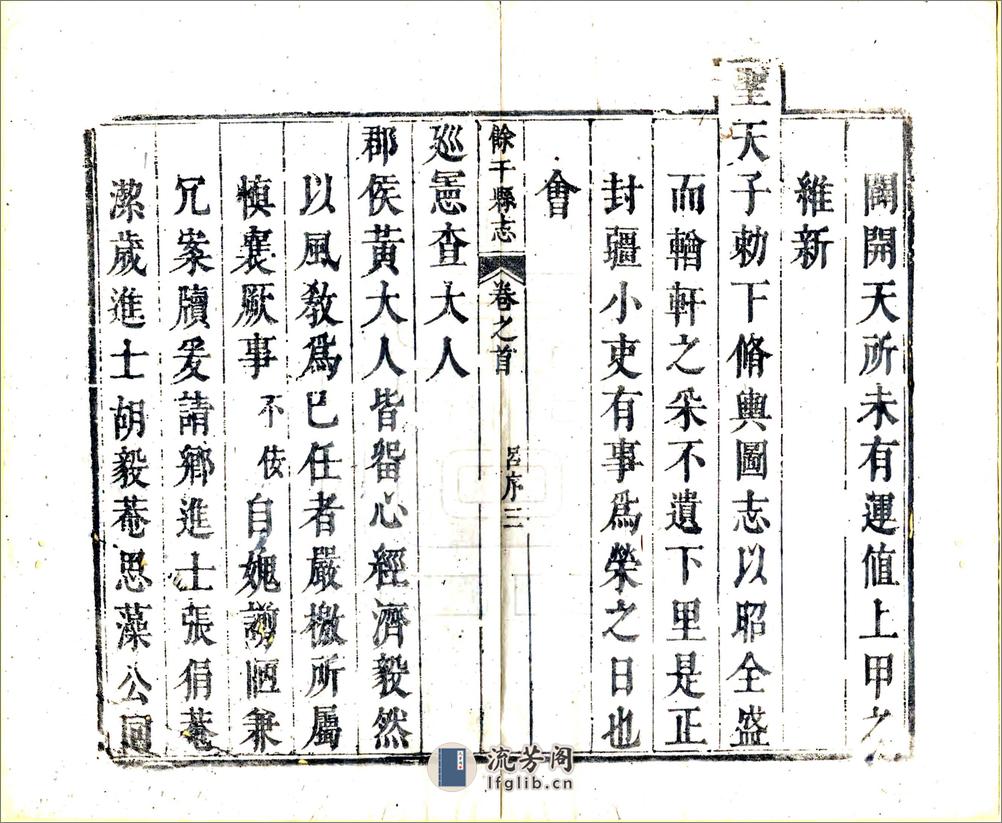 闢開天所未有運值上甲之
維新
聖天子勅下脩輿圖志以昭全盛
而輶軒之采不遺下里是正
封疆小吏有事為榮之日也
會
餘干縣志 卷之首 呂序 三
廵憲查大人
郡侯黃大人皆留心經濟毅然
以風教為己任者嚴檄所屬
慎襄厥事不佞自媿謭陋兼
冗案牘爰請鄉進士張狷菴
潔歲進士胡毅菴思藻公同
流芳阁
lfglib.cn